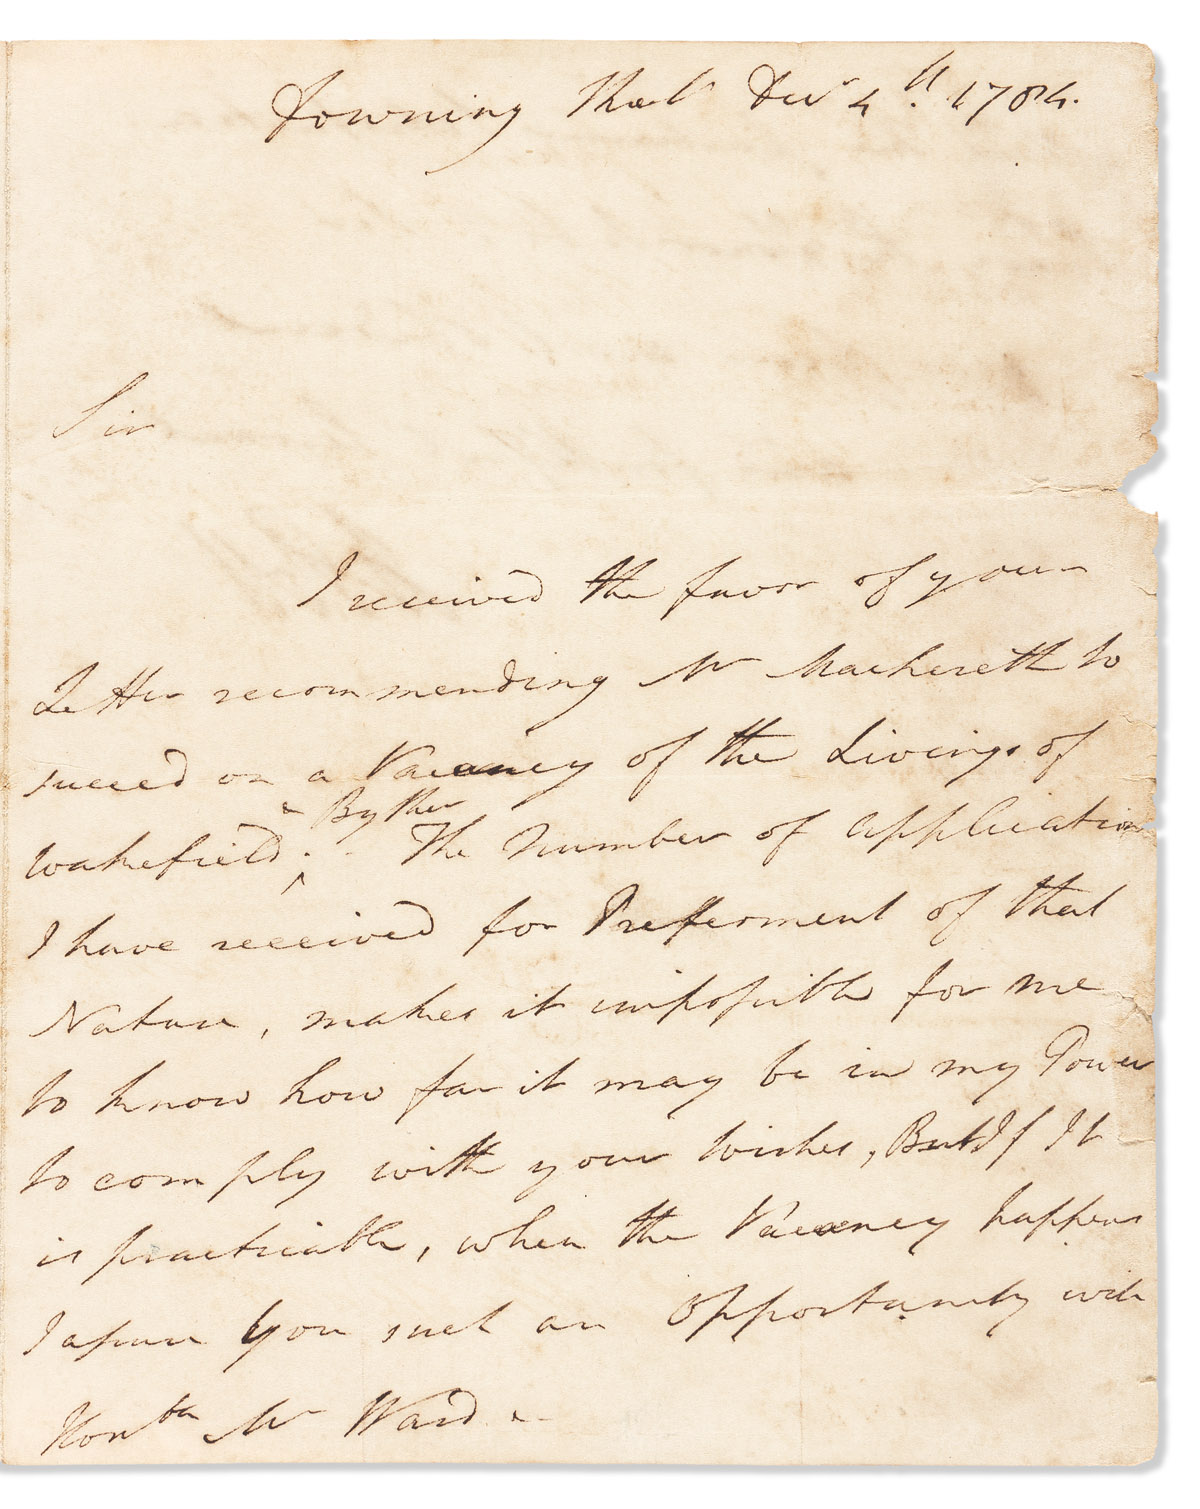 Downing Street Decr 4th. 1784.
Sir
I received the favor of your
Letter recommending Mr Machereth to
succeed on a Vacancy of the Livings of
By ther
Wakefield. The Number of Application
I have received for Prefferment of that
Nature, makes it impossible for me
to know how far it may be in my Power
to comply with your Wishes, But If It
is practicable, when the Vacancy happens
I assure You such an Opportunity will
Honble Mr Ward